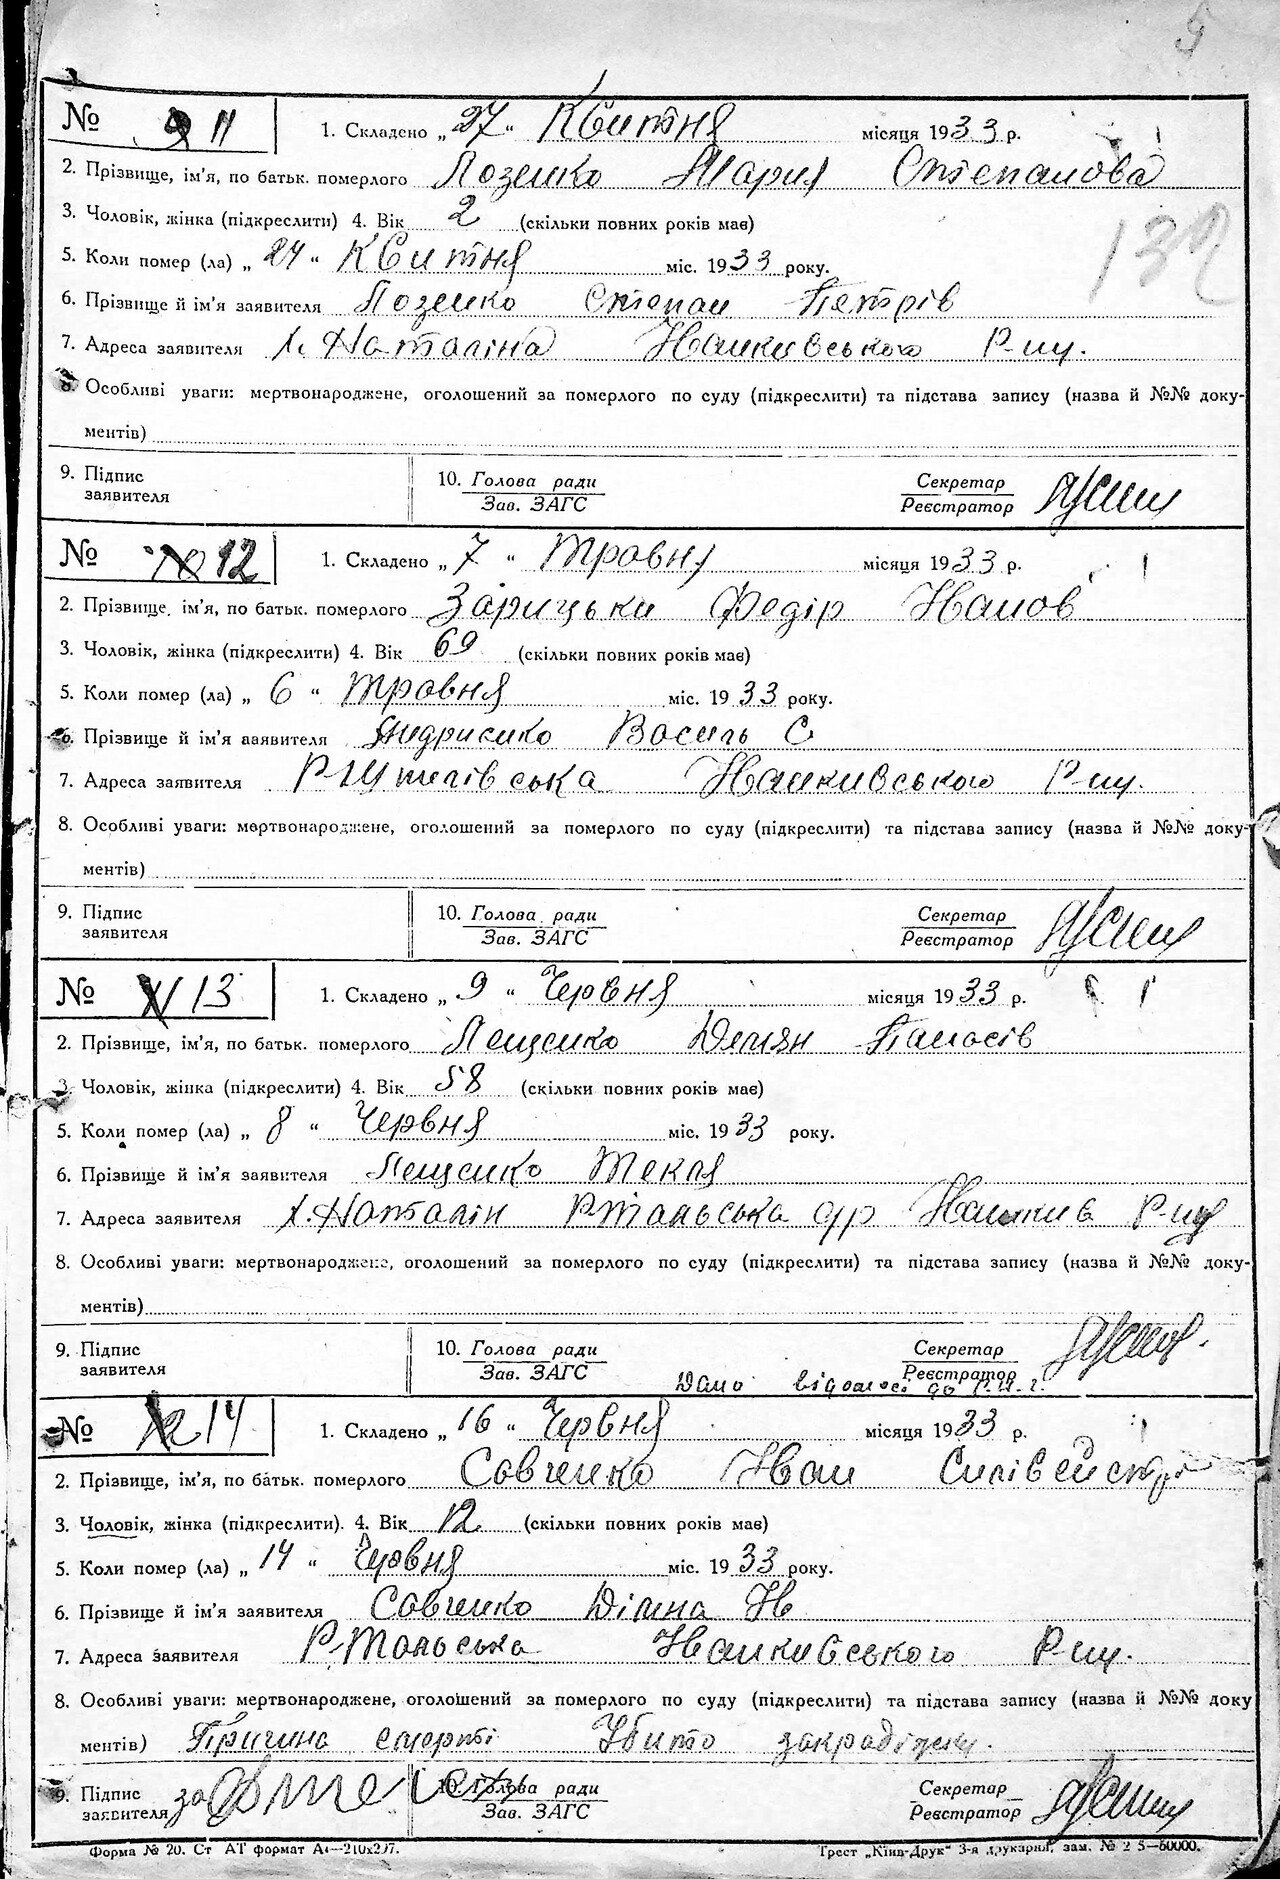 5
№ 9 11 1. Складено „27“ Квитня місяця 1933 р.
2. Прізвище, ім'я, по батьк. померлого Лозенко Мария Степанова
132
3. Чоловік, жінка (підкреслити) 4. Вік 2 (скільки повних років має)
5. Коли помер (ла) „24“ Квитня міс. 1933 року.
6. Прізвище й ім'я заявителя Лозенко Степан Петрів
7. Адреса заявителя х. Наталіна Иванкивського Р-ну.
8. Особливі уваги: мертвонароджене, оголошений за померлого по суду (підкреслити) та підстава запису (назва й №№ доку-
ментів)
9. Підпис заявителя 10. Голова ради Секретар
Зав. ЗАГС Реєстратор
№ 10 12 1. Складено „7“ Травня місяця 1933 р.
2. Прізвище, ім'я, по батьк. померлого Зарицьки Федір Иванов
3. Чоловік, жінка (підкреслити) 4. Вік 69 (скільки повних років має)
5. Коли помер (ла) „6“ Травня міс. 1933 року.
6. Прізвище й ім'я заявителя Андрисико Василь С
7. Адреса заявителя Иванкивського Р-ну.
8. Особливі уваги: мертвонароджене, оголошений за померлого по суду (підкреслити) та підстава запису (назва й №№ доку-
ментів)
9. Підпис заявителя 10. Голова ради Секретар
Зав. ЗАГС Реєстратор
№ 11 13 1. Складено „9“ Червня місяця 1933 р.
2. Прізвище, ім'я, по батьк. померлого Лещенко Демян Панасів
3. Чоловік, жінка (підкреслити) 4. Вік 58 (скільки повних років має)
5. Коли помер (ла) „8“ Червня міс. 1933 року.
6. Прізвище й ім'я заявителя Лещенко Текля
7. Адреса заявителя х. Наталін Р-Тальська Иванкив Р-ну
8. Особливі уваги: мертвонароджене, оголошений за померлого по суду (підкреслити) та підстава запису (назва й №№ доку-
ментів)
9. Підпис заявителя 10. Голова ради Секретар
Зав. ЗАГС Реєстратор
Дано відомості до
№ 12 14 1. Складено „16“ Червня місяця 1933 р.
2. Прізвище, ім'я, по батьк. померлого Савченко Иван
3. Чоловік, жінка (підкреслити). 4. Вік 12 (скільки повних років має)
5. Коли помер (ла) „14“ Червня міс. 1933 року.
6. Прізвище й ім'я заявителя Савченко Ив
7. Адреса заявителя Р-Тальська Иванкивського Р-ну.
8. Особливі уваги: мертвонароджене, оголошений за померлого по суду (підкреслити) та підстава запису (назва й №№ доку
ментів) Причина смерті Убито
9. Підпис заявителя за 10. Голова ради Секретар
Зав. ЗАГС Реєстратор
Форма № 20. Ст АТ формат А4—210х297. Трест „Київ-Друк“ 3-я друкарня, зам. № 2 5—60000.